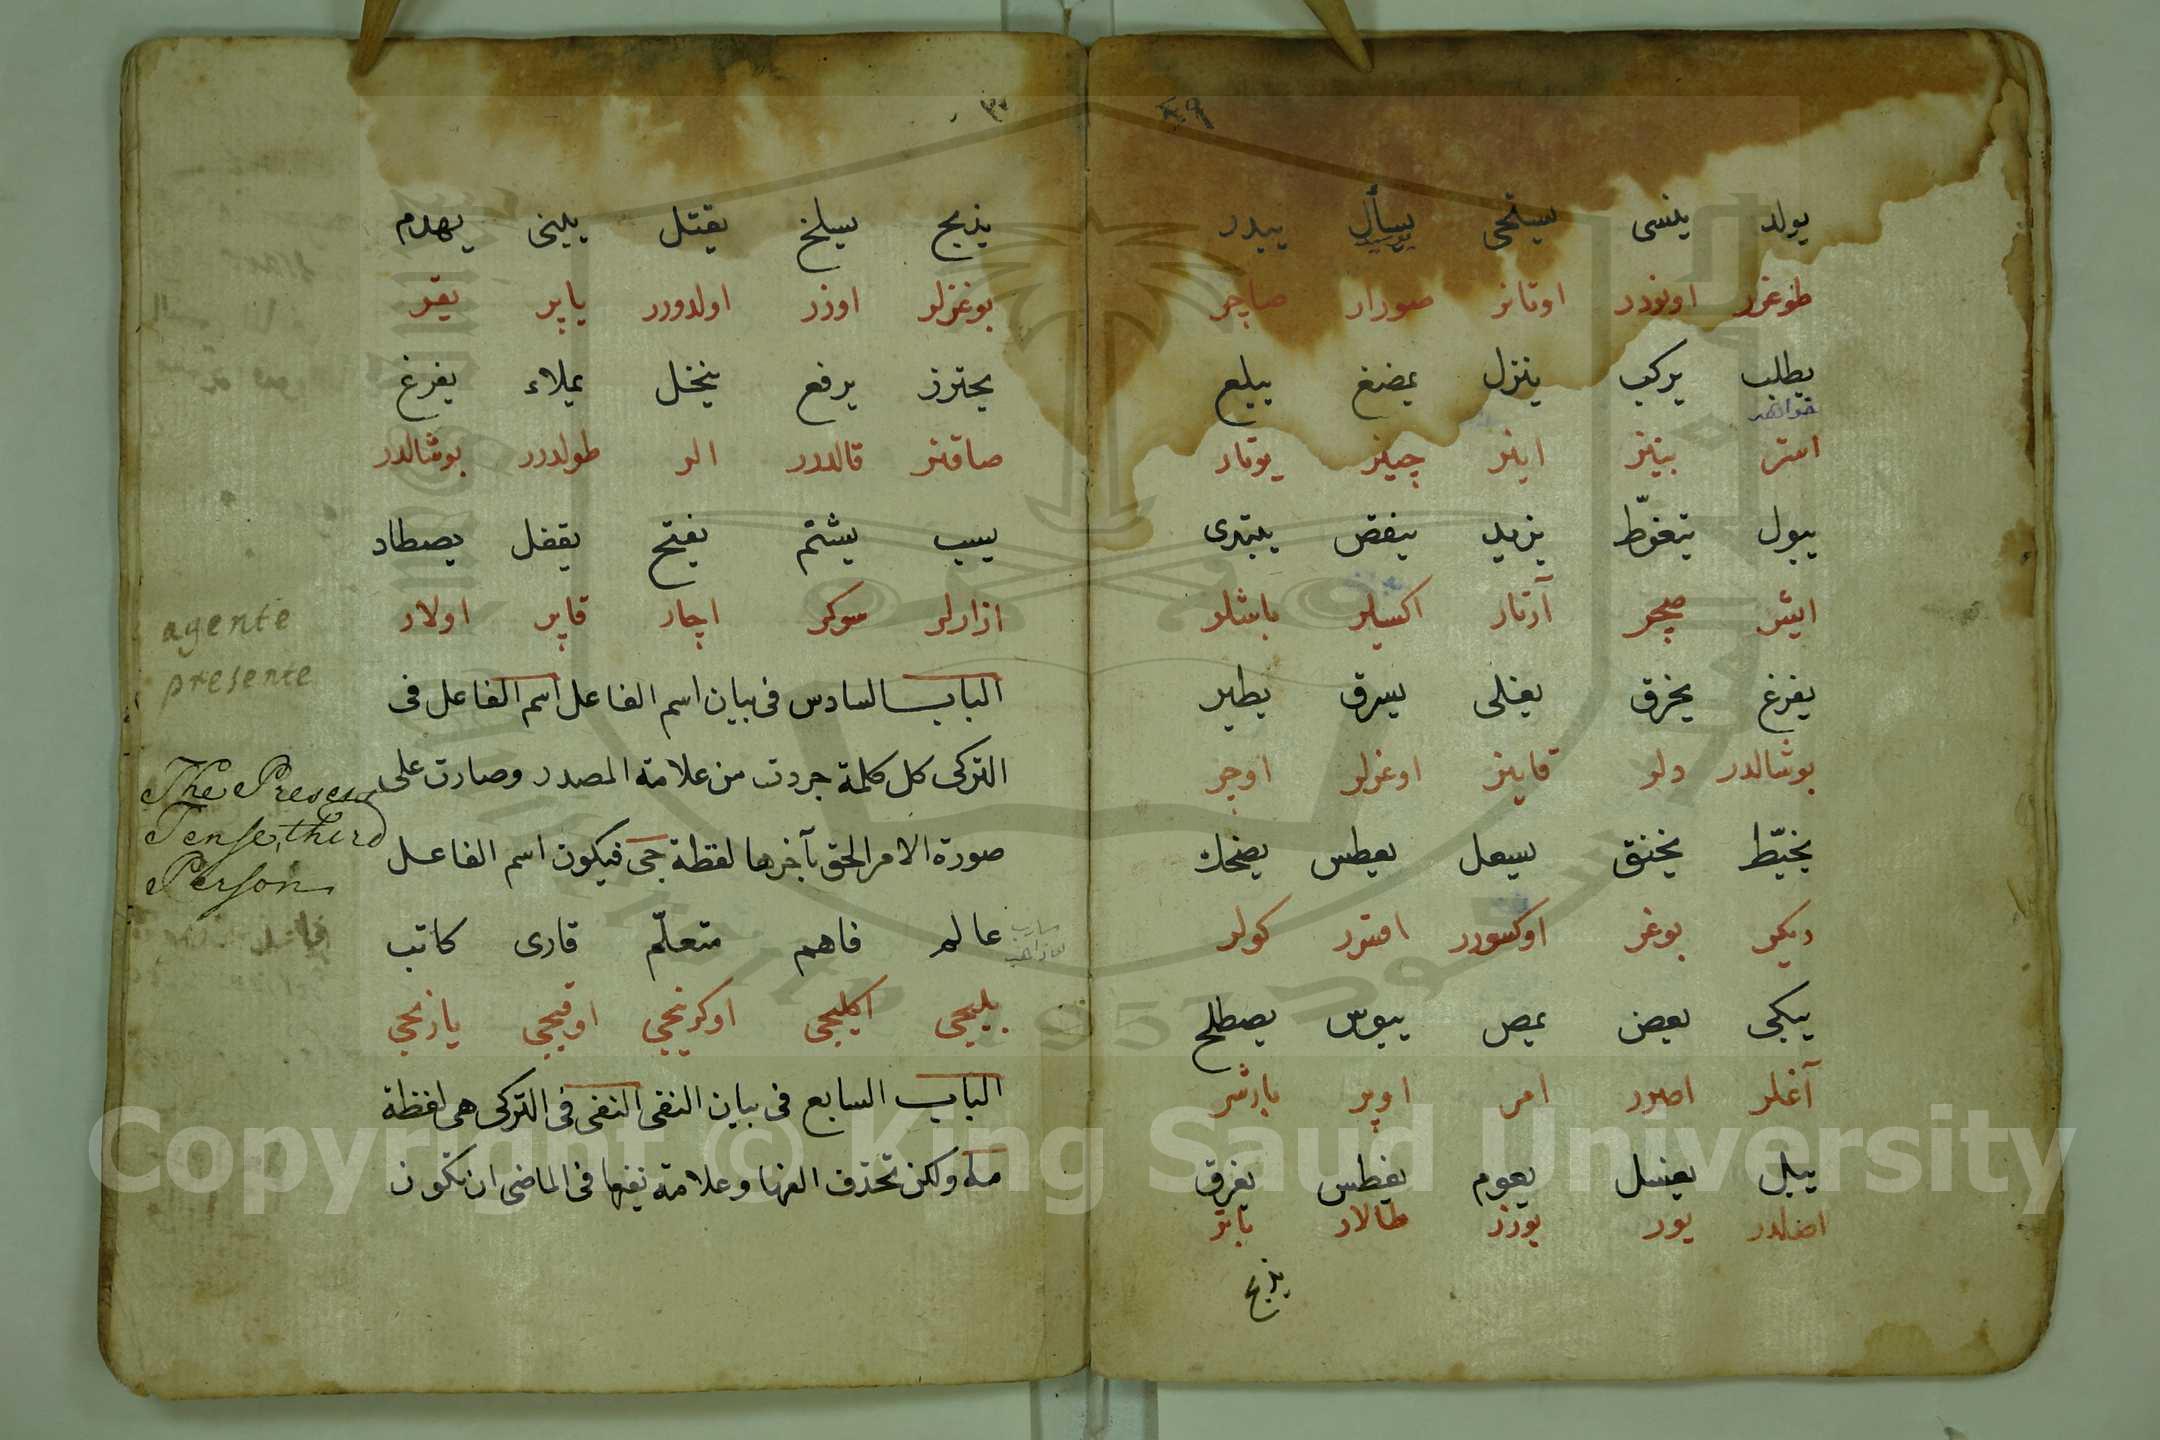 ٤٩
يولد ينسى يستحى يسأل يبدر
طوغرر اونودر اوتانر صورار صاچر
يطلب يركب ينزل يمضغ يبلع
خواهد
استر بينر اينر چينر يوتار
يبول يتغوّط يزيد ينقص يبتدى
ايشر صچر آرتار اكسيلر باشلر
يفرغ يخرق يغلى يسرق يطير
بوشالدر دلر قاينر اوغرلر اوچر
يخيّط يخنق يسعل يعطس يضحك
ديكر بوغر اوكسورر اقسرر كولر
يبكى يعض يمص يبوس يصطلح
آغلر اصرر امر اوپر بارشر
يبل يغسل يعوم يغطس يغرق
اصلدر يور يوزر طالار باتر
يذبح
٣٠
يذبح يسلخ يقتل يبنى يهدم
بوغزلر اوزر اولدورر ياپر يقر
يحترز يرفع ينخل يملاء يفرغ
صاقنر قالدرر الر طولدرر بوشالدر
يسب يشتم يفتح يقفل يصطاد
ازارلر سوكر اچار قاپر اولار
الباب السادس فى بيان اسم الفاعل اسم الفاعل فى
التركى كل كلمة جردت من علامة المصدر وصارت على
صورة الامر الحق بآخرها لفظة جى فيكون اسم الفاعل
عالم فاهم متعلّم قارى كاتب
بليجى اكليجى اوكرنجى اوقيجى يازيجى
الباب السابع فى بيان النفى النفى فى التركى هى لفظة
مه ولكن تحذف الفها وعلامة نفيها فى الماضى ان تكون
agente
presente
The Present
Tense, third
Person
Copyright © King Saud University
1957